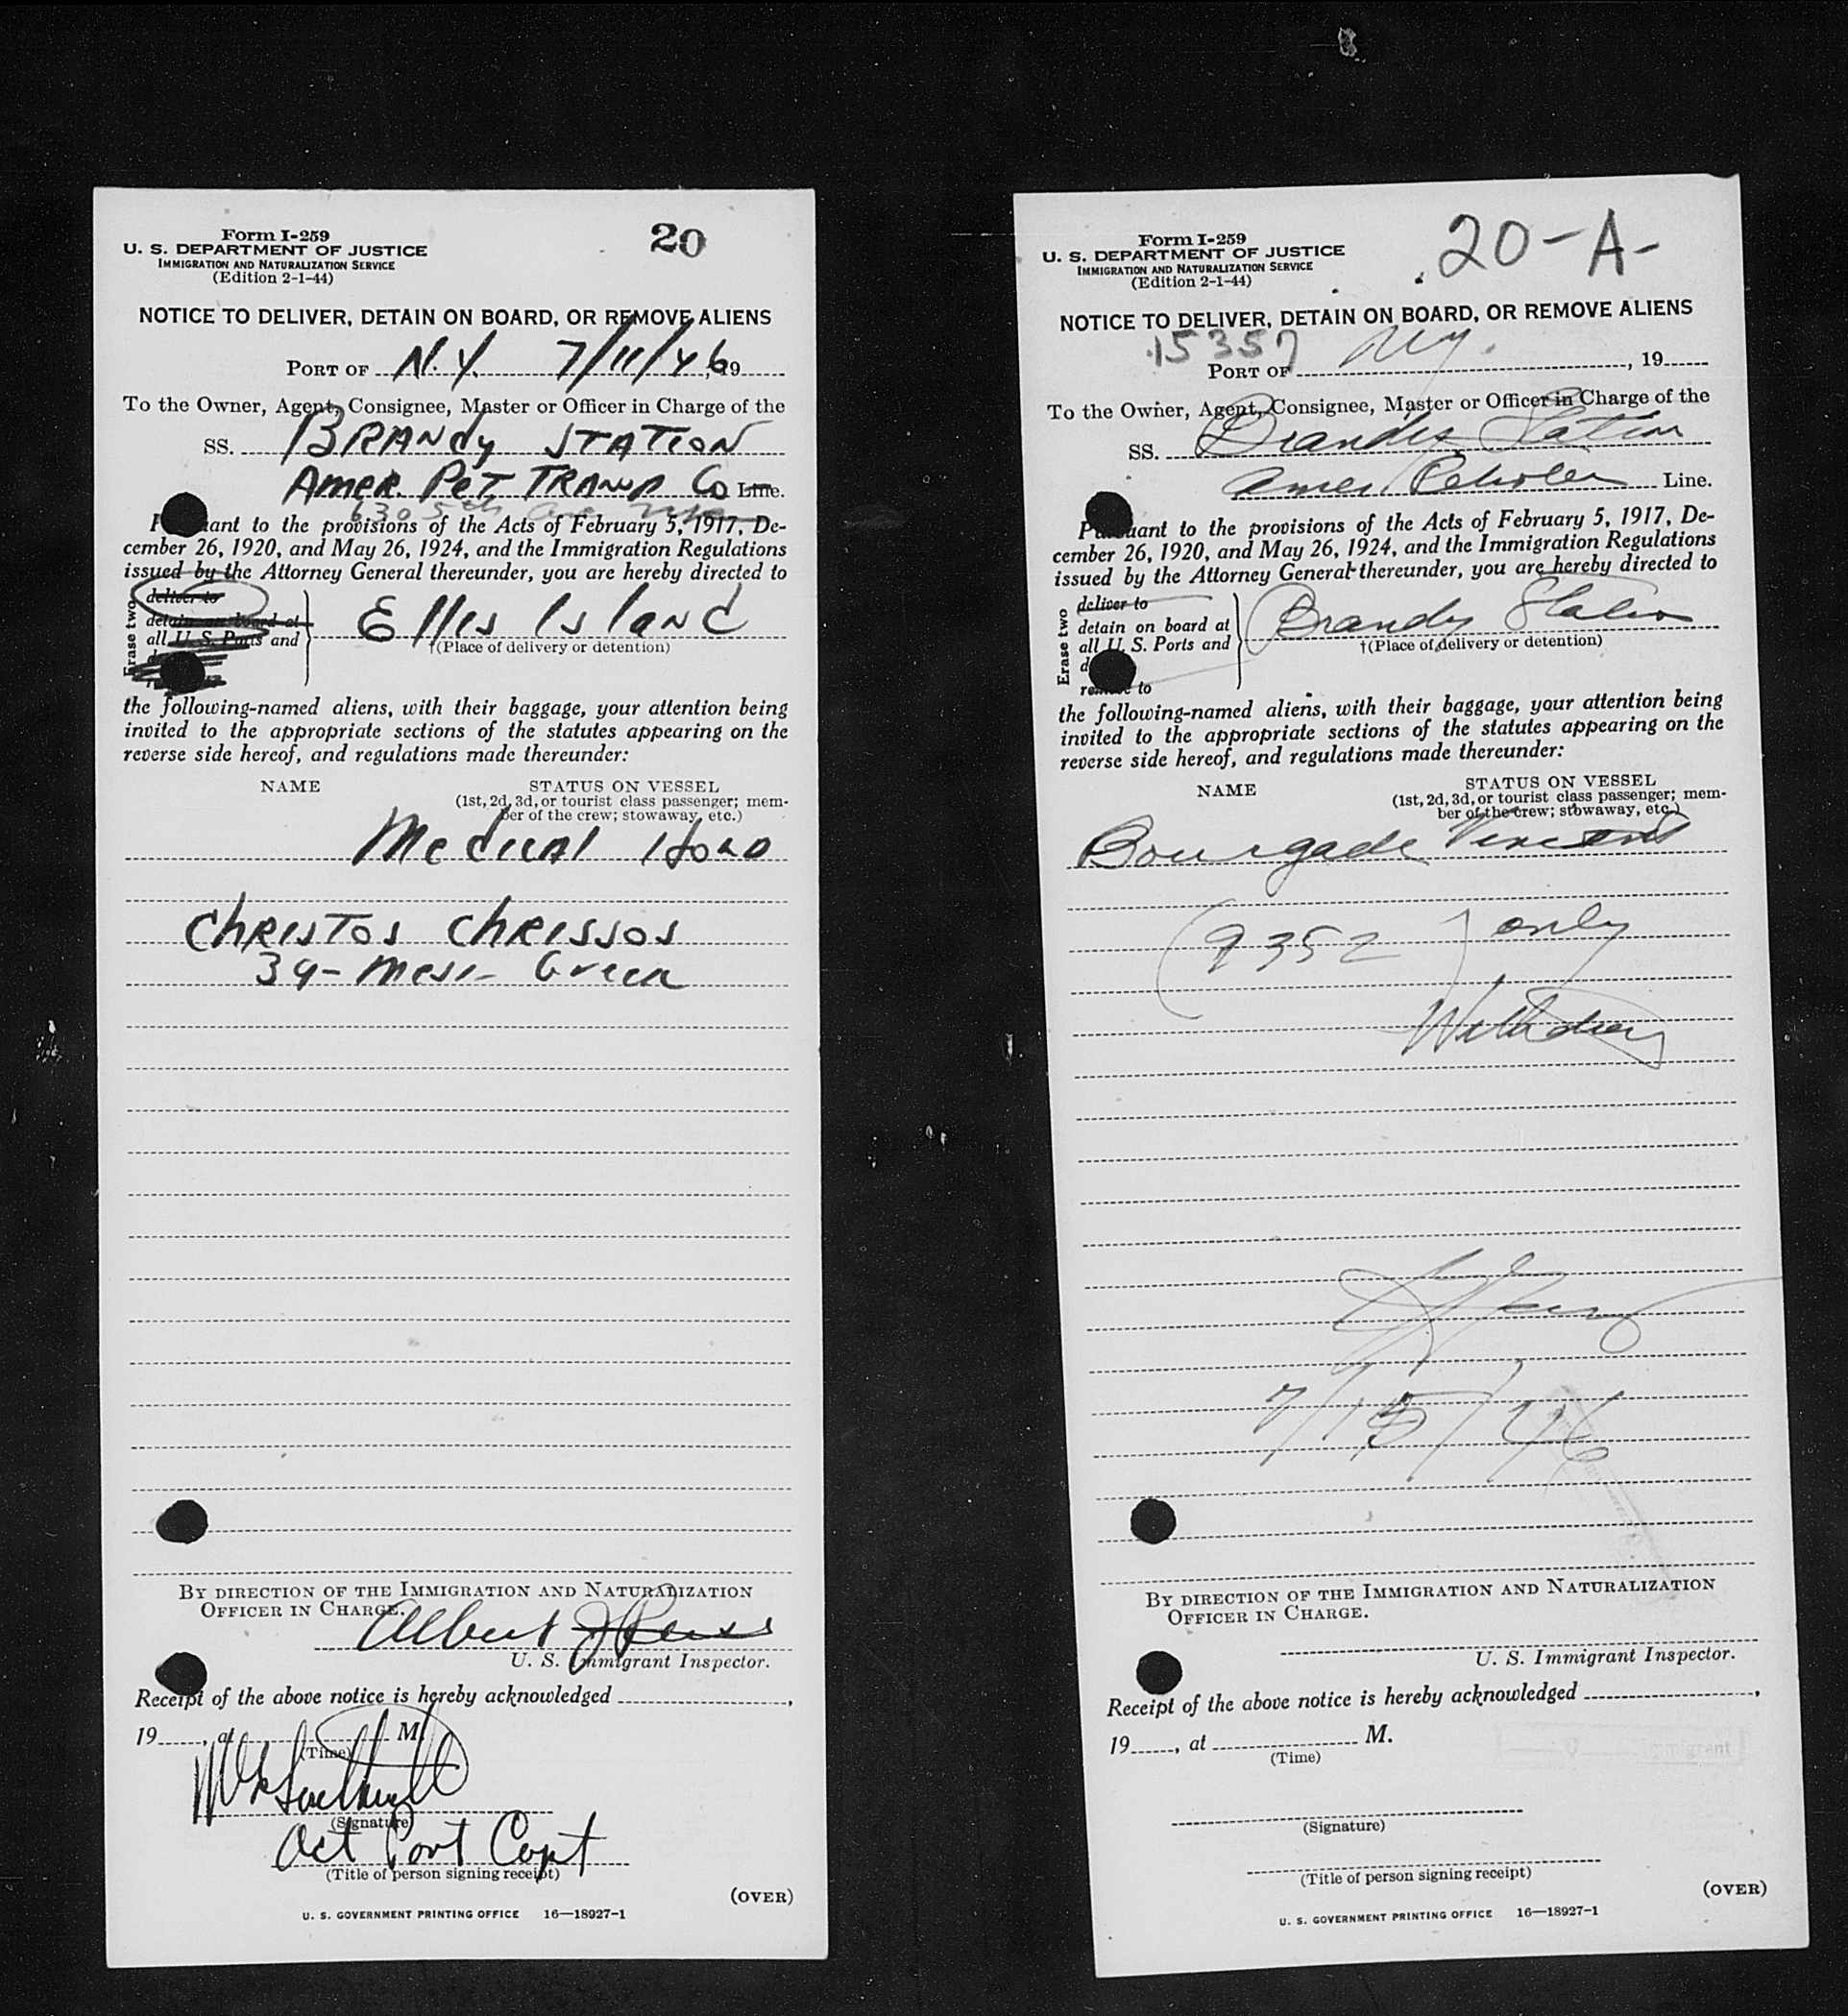 Form I-259
U. S. DEPARTMENT OF JUSTICE
IMMIGRATION AND NATURALIZATION SERVICE
(Edition 2-1-44)
20
NOTICE TO DELIVER, DETAIN ON BOARD, OR REMOVE ALIENS
PORT OF N.Y. 7/11/46, 19
To the Owner, Agent, Consignee, Master or Officer in Charge of the
SS. BRANDY STATION
AMER. PET. TRANS Co Line.
630 5th Ave
Pursuant to the provisions of the Acts of February 5, 1917, De-
cember 26, 1920, and May 26, 1924, and the Immigration Regulations
issued by the Attorney General thereunder, you are hereby directed to
Erase two
deliver to
detain on board at
all U. S. Ports and
Ellis Island
†(Place of delivery or detention)
the following-named aliens, with their baggage, your attention being
invited to the appropriate sections of the statutes appearing on the
reverse side hereof, and regulations made thereunder:
NAME STATUS ON VESSEL
(1st, 2d, 3d, or tourist class passenger; mem-
ber of the crew; stowaway, etc.)
Medical Hold
CHRISTOS CHRISSOS
39- Mess- Greek
BY DIRECTION OF THE IMMIGRATION AND NATURALIZATION
OFFICER IN CHARGE.
Albert J
U. S. Immigrant Inspector.
Receipt of the above notice is hereby acknowledged ,
19 , at M.
(Time)
(Signature)
Act Port Capt
(Title of person signing receipt)
(OVER)
U. S. GOVERNMENT PRINTING OFFICE 16—18927-1
Form I-259
U. S. DEPARTMENT OF JUSTICE
IMMIGRATION AND NATURALIZATION SERVICE
(Edition 2-1-44)
20-A-
NOTICE TO DELIVER, DETAIN ON BOARD, OR REMOVE ALIENS
15357
PORT OF NY. , 19
To the Owner, Agent, Consignee, Master or Officer in Charge of the
SS. Brandy Station
Amer Petrolen Line.
Pursuant to the provisions of the Acts of February 5, 1917, De-
cember 26, 1920, and May 26, 1924, and the Immigration Regulations
issued by the Attorney General thereunder, you are hereby directed to
Erase two
deliver to
detain on board at
all U. S. Ports and
remove to
Brandy Station
†(Place of delivery or detention)
the following-named aliens, with their baggage, your attention being
invited to the appropriate sections of the statutes appearing on the
reverse side hereof, and regulations made thereunder:
NAME STATUS ON VESSEL
(1st, 2d, 3d, or tourist class passenger; mem-
ber of the crew; stowaway, etc.)
Bourgade Vincent
(9352) only
Withdrew
7/15/46
BY DIRECTION OF THE IMMIGRATION AND NATURALIZATION
OFFICER IN CHARGE.
U. S. Immigrant Inspector.
Receipt of the above notice is hereby acknowledged ,
19 , at M.
(Time)
(Signature)
(Title of person signing receipt)
(OVER)
U. S. GOVERNMENT PRINTING OFFICE 16—18927-1